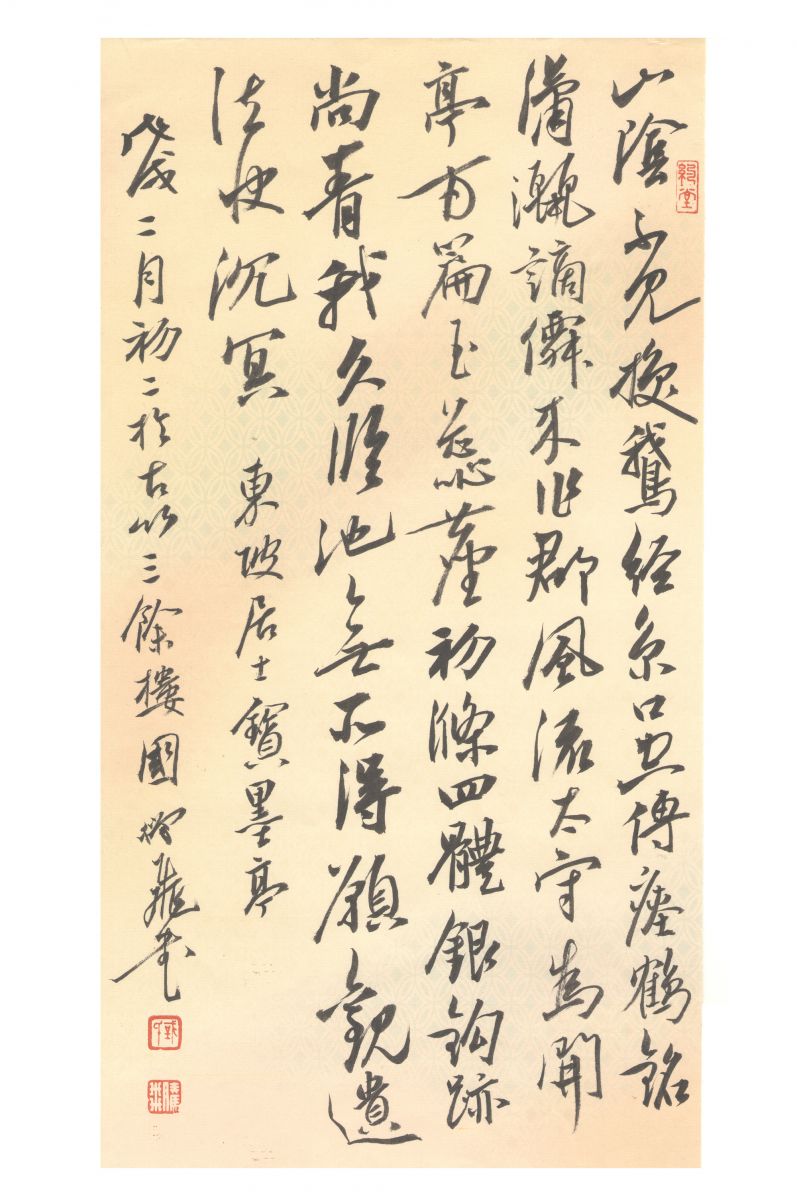 山陰不見換鵝經京口傳瘞鶴銘
瀟灑謫僊來作郡風流太守為開
亭篇玉蕊塵初滌四體銀鈎跡
尚青我久臨池無所得願觀遺
法快沉冥 東坡居士寶墨亭
戊戌二月初二於古三餘樓國書